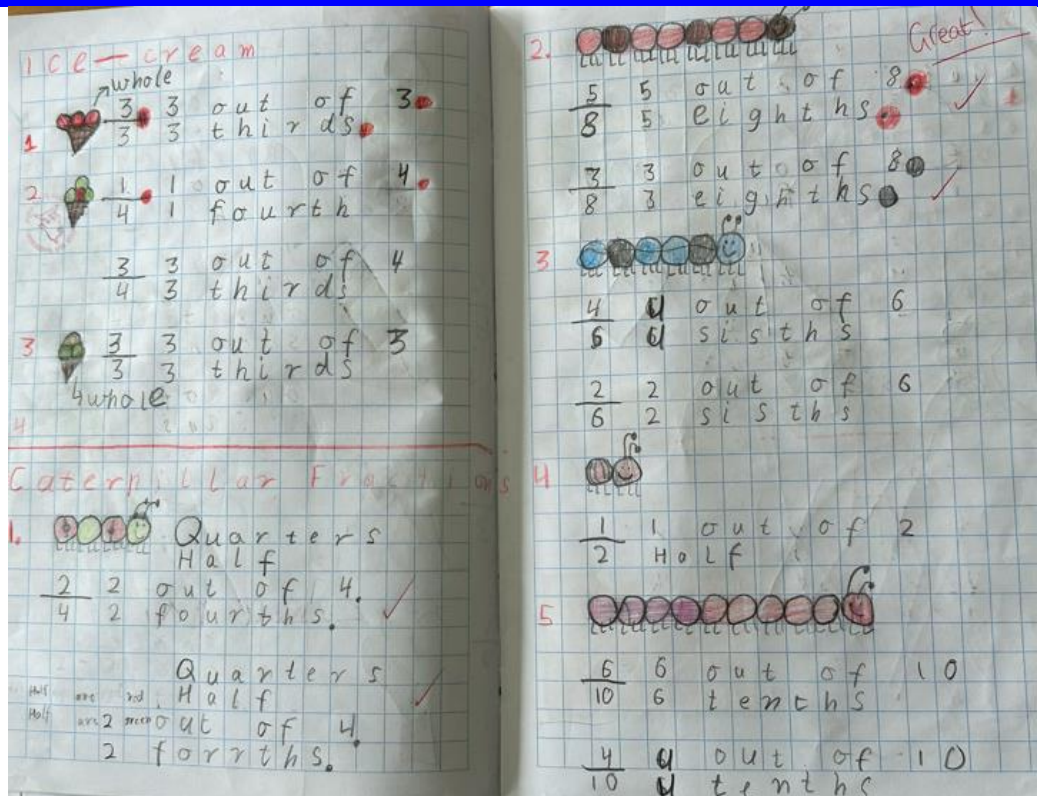 Ice-cream
whole
1 3/3 3 out of 3
3 thirds
2 1/4 1 out of 4
1 fourth
3/4 3 out of 4
3 thirds
3 3/3 3 out of 3
3 thirds
4 whole
4
Caterpillar Fractions
1. Quarters
Half
2/4 2 out of 4.
2 fourths.
Quarters
Half are red. Half
Half are green 2 out of 4.
2 forrths.
2. Great!
5/8 5 out of 8
5 eighths
3/8 3 out of 8
3 eighths
3
4/6 4 out of 6
4 sisths
2/6 2 out of 6
2 sisths
4
1/2 1 out of 2
Half
5
6/10 6 out of 10
6 tenths
4/10 4 out of 10
4 tenths